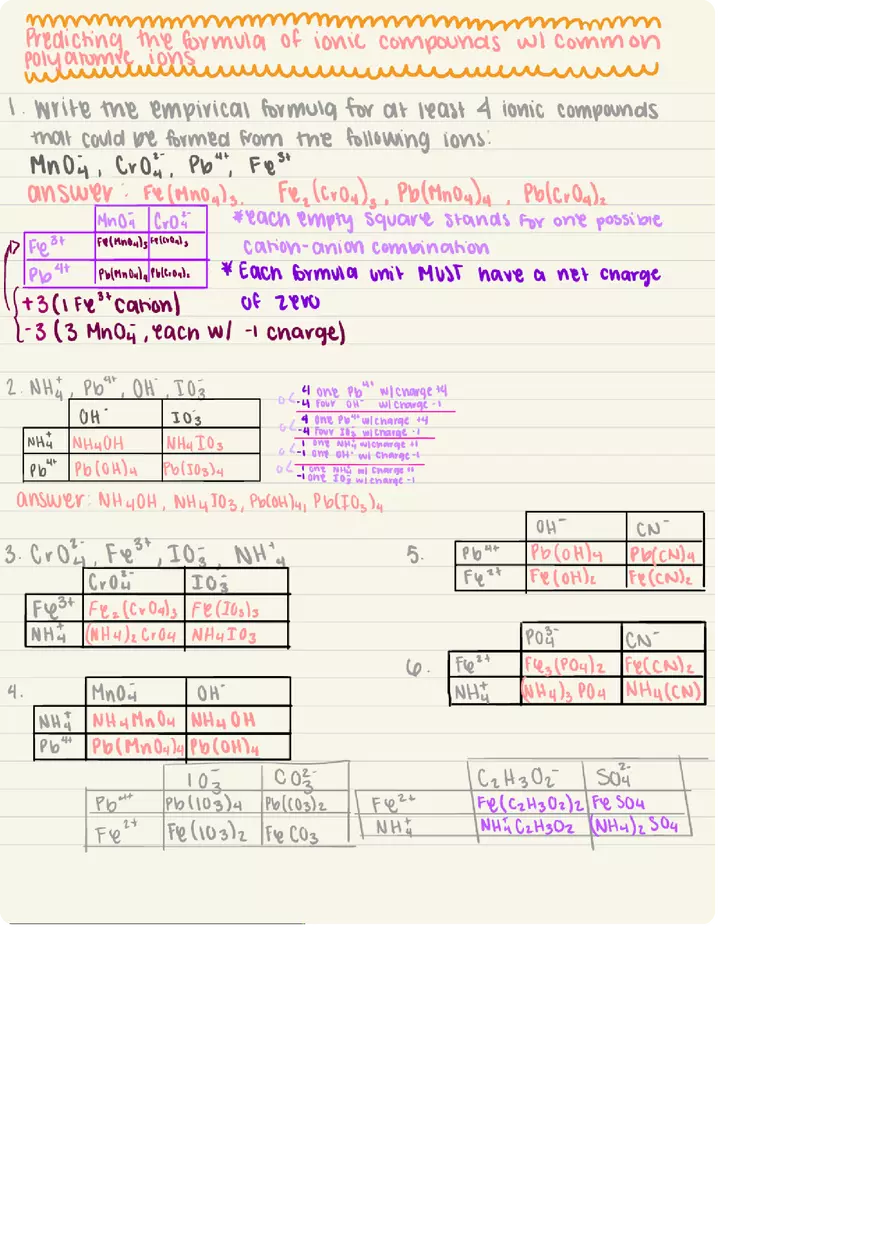 Predicting the formula of ionic compounds w/ common
polyatomic ions
1. Write the empirical formula for at least 4 ionic compounds
that could be formed from the following ions:
MnO₄⁻, CrO₄²⁻, Pb⁴⁺, Fe³⁺
answer: Fe(MnO₄)₃, Fe₂(CrO₄)₃, Pb(MnO₄)₄, Pb(CrO₄)₂
MnO₄⁻ CrO₄²⁻
Fe³⁺ Fe(MnO₄)₃ Fe(CrO₄)₃
Pb⁴⁺ Pb(MnO₄)₄ Pb(CrO₄)₂
*each empty square stands for one possible
cation-anion combination
* Each formula unit MUST have a net charge
of zero
+3 (1 Fe³⁺ cation)
-3 (3 MnO₄⁻, each w/ -1 charge)
2. NH₄⁺, Pb⁴⁺, OH⁻, IO₃⁻
OH⁻ IO₃⁻
NH₄⁺ NH₄OH NH₄IO₃
Pb⁴⁺ Pb(OH)₄ Pb(IO₃)₄
0< 4 one Pb⁴⁺ w/charge +4
-4 four OH⁻ w/ charge -1
0< 4 one Pb⁴⁺ w/charge +4
-4 four IO₃⁻ w/charge -1
0< 1 one NH₄⁺ w/charge +1
-1 one OH⁻ w/ charge -1
0< 1 one NH₄⁺ w/ charge +1
-1 one IO₃⁻ w/ charge -1
answer: NH₄OH, NH₄IO₃, Pb(OH)₄, Pb(IO₃)₄
3. CrO₄²⁻, Fe³⁺, IO₃⁻, NH₄⁺
CrO₄²⁻ IO₃⁻
Fe³⁺ Fe₂(CrO₄)₃ Fe(IO₃)₃
NH₄⁺ (NH₄)₂CrO₄ NH₄IO₃
4.
MnO₄⁻ OH⁻
NH₄⁺ NH₄MnO₄ NH₄OH
Pb⁴⁺ Pb(MnO₄)₄ Pb(OH)₄
5.
OH⁻ CN⁻
Pb⁴⁺ Pb(OH)₄ Pb(CN)₄
Fe²⁺ Fe(OH)₂ Fe(CN)₂
6.
PO₄³⁻ CN⁻
Fe²⁺ Fe₃(PO₄)₂ Fe(CN)₂
NH₄⁺ (NH₄)₃PO₄ NH₄(CN)
IO₃⁻ CO₃²⁻
Pb⁴⁺ Pb(IO₃)₄ Pb(CO₃)₂
Fe²⁺ Fe(IO₃)₂ FeCO₃
C₂H₃O₂⁻ SO₄²⁻
Fe²⁺ Fe(C₂H₃O₂)₂ FeSO₄
NH₄⁺ NH₄⁺C₂H₃O₂ (NH₄)₂SO₄